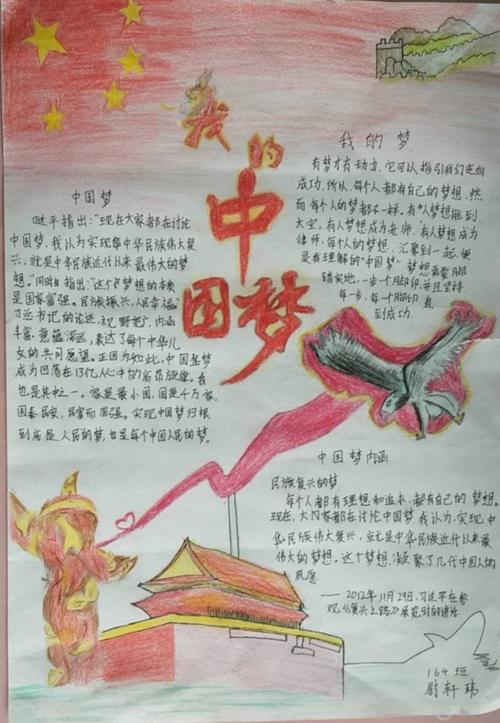 我的
中国梦
我的梦
有梦才有动力,它可以指引我们走向
成功,所以,每个人都有自己的梦想,然
而每个人的梦都不一样。有人梦想能到
太空,有人梦想成为老师,有人梦想成为
律师,每个人的梦想,汇聚到一起,便
是我理解的“中国梦”梦想需要脚
踏实地,一步一个脚印,并且坚持
每一步,每个脚印,直
到成功.
中国梦
近平指出:“现在大家都在讨论
中国梦,我认为实现中华民族伟大复
兴,就是中华民族近代以来最伟大的梦
想。”同时指出:“这个梦想的本质
是国家富强。民族振兴,人民幸福”
习近平书记的论述,视野宽广,内涵
丰富,意蕴深远,表达了每个中华儿
女的共同愿望。正因为如此,中国梦
成为回荡在13亿人心中的高昂旋律。我
也是其中之一。家是最小国,国是千万家,
国泰民安,民富而国强。实现中国梦归根
到底是人民的梦,也是每个中国人民的梦。
中国梦内涵
民族复兴的梦
每个人都有理想和追求,都有自己的梦想.
现在,大家都在讨论中国梦,我认为,实现中
华民族伟大复兴,就是中华民族近代以来最
伟大的梦想。这个梦想,凝聚了几代中国人的
夙愿.
——2012年11月29日,习近平在参
观《复兴之路》展览时的讲话
164班
尉轩玮